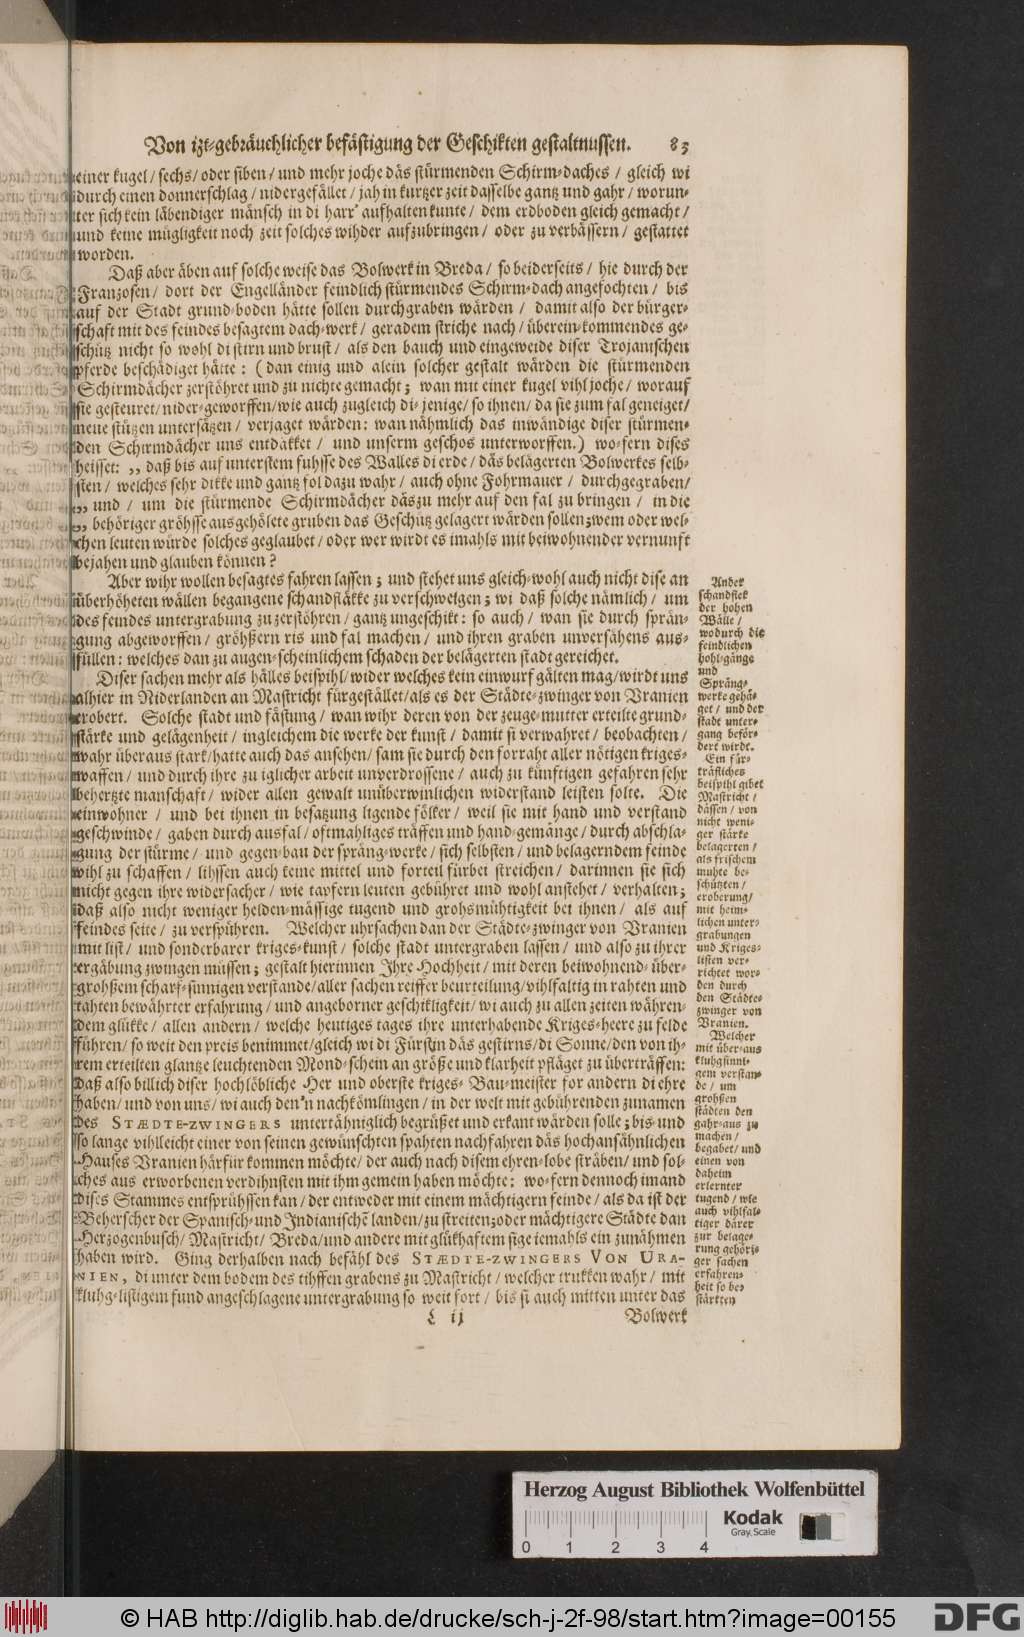 Von izt-gebräuchlicher befästigung der Geschikten gestaltnussen. 83
einer kugel / sechs / oder siben / und mehr joche däs stürmenden Schirm-daches / gleich wi
durch einen donnerschlag / nidergefället / jah in kurtzer zeit dasselbe gantz und gahr / worun-
ter sich kein läbendiger mänsch in di harr' aufhalten kunte / dem erdboden gleich gemacht /
und keine mügligkeit noch zeit solches wihder aufzubringen / oder zu verbässern / gestattet
worden.
Daß aber äben auf solche weise das Bolwerk in Breda / so beiderseits / hie durch der
Franzosen / dort der Engelländer feindlich stürmendes Schirm-dach angefochten / bis
auf der Stadt grund-boden hätte sollen durchgraben wärden / damit also der bürger-
schaft mit des feindes besagtem dach-werk / geradem striche nach / überein-kommendes ge-
schütz nicht so wohl di stirn und brust / als den bauch und eingeweide diser Trojanischen
pferde beschädiget hätte : (dan einig und alein solcher gestalt wärden die stürmenden
Schirmdächer zerstöhret und zu nichte gemacht ; wan mit einer kugel vihl joche / worauf
sie gesteuret / nider-geworffen / wie auch zugleich di-jenige / so ihnen / da sie zum fal geneiget /
neue stützen untersätzen / verjaget wärden : wan nähmlich das inwändige diser stürmen-
den Schirmdächer uns entdäkket / und unserm geschos unterworffen.) wo-fern dises
heisset: ,, daß bis auf unterstem fuhsse des Walles di erde / däs belägerten Bolwerkes selb-
sten / welches sehr dikke und gantz fol dazu wahr / auch ohne Fohrmauer / durchgegraben /
,, und / um die stürmende Schirmdächer däszu mehr auf den fal zu bringen / in die
,, behöriger gröhsse ausgehölete gruben das Geschütz gelagert wärden sollen; wem oder wel-
chen leuten würde solches geglaubet / oder wer wirdt es imahls mit beiwohnender vernunft
bejahen und glauben können ?
Aber wihr wollen besagtes fahren lassen ; und stehet uns gleich-wohl auch nicht dise an
überhöheten wällen begangene schandfläkke zu verschweigen ; wi daß solche nämlich / um
des feindes untergrabung zu zerstöhren / gantz ungeschikt : so auch / wan sie durch sprän-
gung abgeworffen / gröhßern ris und fal machen / und ihren graben unversähens aus-
füllen : welches dan zu augen-scheinlichem schaden der belägerten stadt gereichet.
Diser sachen mehr als hälles beispihl / wider welches kein einwurf gälten mag / wirdt uns
alhier in Niderlanden an Mastricht fürgestället / als es der Städte-zwinger von Uranien
erobert. Solche stadt und fästung / wan wihr deren von der zeuge-mutter erteilte grund-
stärke und gelägenheit / ingleichem die werke der kunst / damit si verwahret / beobachten /
wahr überaus stark / hatte auch das ansehen / sam sie durch den forraht aller nötigen kriges-
waffen / und durch ihre zu iglicher arbeit unverdrossene / auch zu künftigen gefahren sehr
behertzte manschaft / wider allen gewalt unüberwinlichen widerstand leisten solte. Die
einwohner / und bei ihnen in besatzung ligende fölker / weil sie mit hand und verstand
geschwinde / gaben durch ausfal / oftmahliges träffen und hand-gemänge / durch abschla-
gung der stürme / und gegen-bau der spräng-werke / sich selbsten / und belagerndem feinde
vihl zu schaffen / lihssen auch keine mittel und forteil fürbei streichen / darinnen sie sich
nicht gegen ihre widersacher / wie tapfern leuten gebühret und wohl anstehet / verhalten ;
daß also nicht weniger helden-mässige tugend und grohsmühtigkeit bei ihnen / als auf
feindes seite / zu verspühren. Welcher uhrsachen dan der Städte-zwinger von Uranien
mit list / und sonderbarer kriges-kunst / solche stadt untergraben lassen / und also zu ihrer
ergäbung zwingen müssen ; gestalt hierinnen Ihre Hochheit / mit deren beiwohnend-über-
grohßem scharf-sinnigen verstande / aller sachen reiffer beurteilung / vihlfaltig in rahten und
tahten bewährter erfahrung / und angeborner geschikligkeit / wi auch zu allen zeiten währen-
dem glükke / allen andern / welche heutiges tages ihre unterhabende Kriges-heere zu felde
führen / so weit den preis benimmet / gleich wi di Fürstin däs gestirns / di Sonne / den von ih-
rem erteilten glantze leuchtenden Mond-schein an größe und klarheit pfläget zu überträffen:
Daß also billich diser hochlöbliche Her und oberste kriges-Bau-meister for andern di ehre
haben / und von uns / wi auch den'n nachkömlingen / in der welt mit gebührenden zunamen
des STÆDTE-ZWINGERS untertähniglich begrüßet und erkant wärden solle ; bis und
so lange vihlleicht einer von seinen gewünschten spahten nachfahren däs hochansähnlichen
Hauses Uranien härfür kommen möchte / der auch nach disem ehren-lobe sträben / und sol-
ches aus erworbenen verdihnsten mit ihm gemein haben möchte : wo-fern dennoch imand
dises Stammes entsprühssen kan / der entweder mit einem mächtigern feinde / als da ist der
Beherscher der Spanisch- und Jndianischē landen / zu streiten; oder mächtigere Städte dan
Herzogenbusch / Mastricht / Breda / und andere mit glükhaftem sige iemahls ein zunähmen
haben wird. Ging derhalben nach befähl des STÆDTE-ZWINGERS VON URA-
NIEN, di unter dem bodem des tihffen grabens zu Mastricht / welcher trukken wahr / mit
kluhg-listigem fund angeschlagene untergrabung so weit fort / bis si auch mitten unter das
L ij Bolwerk
Ander
schandflek
der hohen
Wälle /
wodurch die
feindlichen
hohl-gänge
und
Spräng-
werke gehä-
get / und der
stadt unter-
gang beför-
dert wirdt.
Ein für-
träfliches
beispihl gibet
Mastricht /
dässen / von
nicht weni-
ger stärke
belagerten /
als frischem
muhte be-
schützten /
eroberung /
mit heim-
lichen unter-
grabungen
und Kriges-
listen ver-
richtet wor-
den durch
den Städte-
zwinger von
Uranien.
Welcher
mit über-aus
kluhgsinni-
gem verstan-
de / um
grohßen
städten den
gahr-aus zu
machen /
begabet / und
einen von
daheim
erlernter
tugend / wie
auch vihlfal-
tiger därer
zur belage-
rung gehöri-
ger sachen
erfahren-
heit so be-
stärkten
Herzog August Bibliothek Wolfenbüttel
Kodak
Gray Scale
0 1 2 3 4
© HAB http://diglib.hab.de/drucke/sch-j-2f-98/start.htm?image=00155
DFG